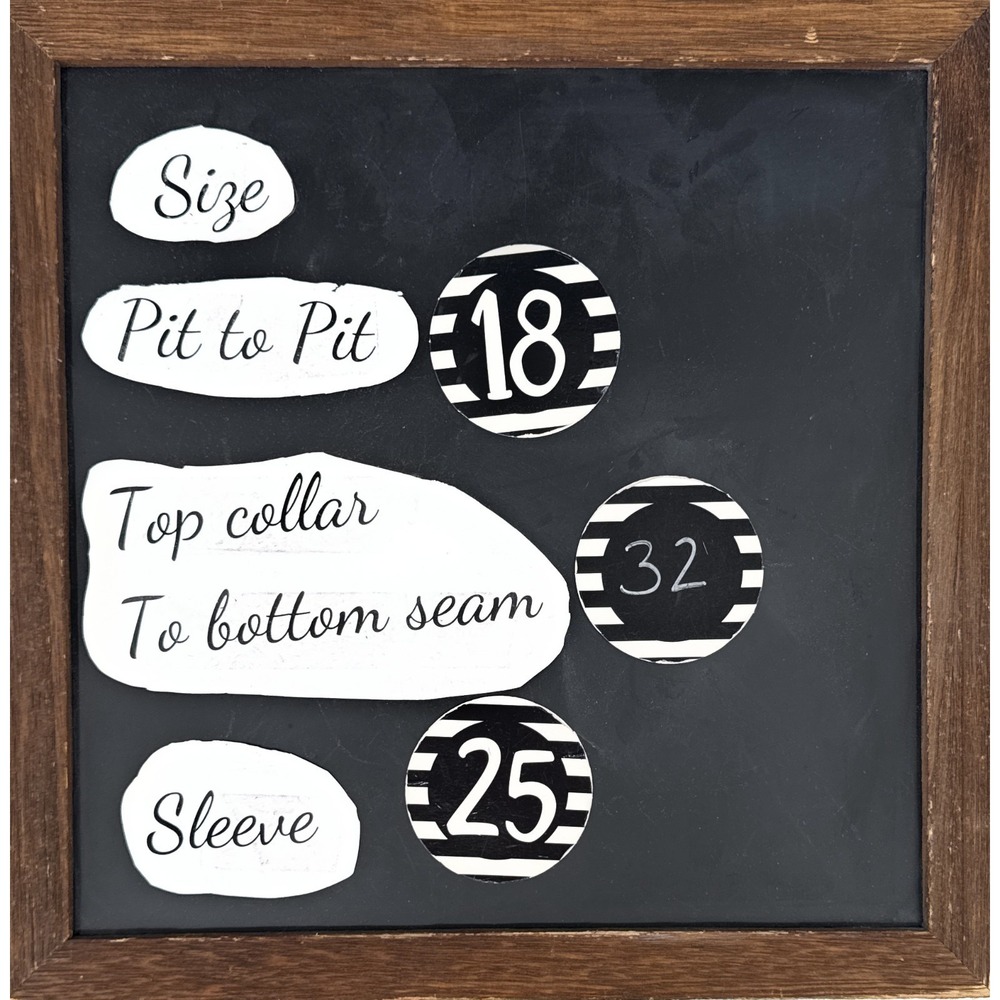 Size
Pit to Pit
18
Top collar
To bottom seam
32
Sleeve
25